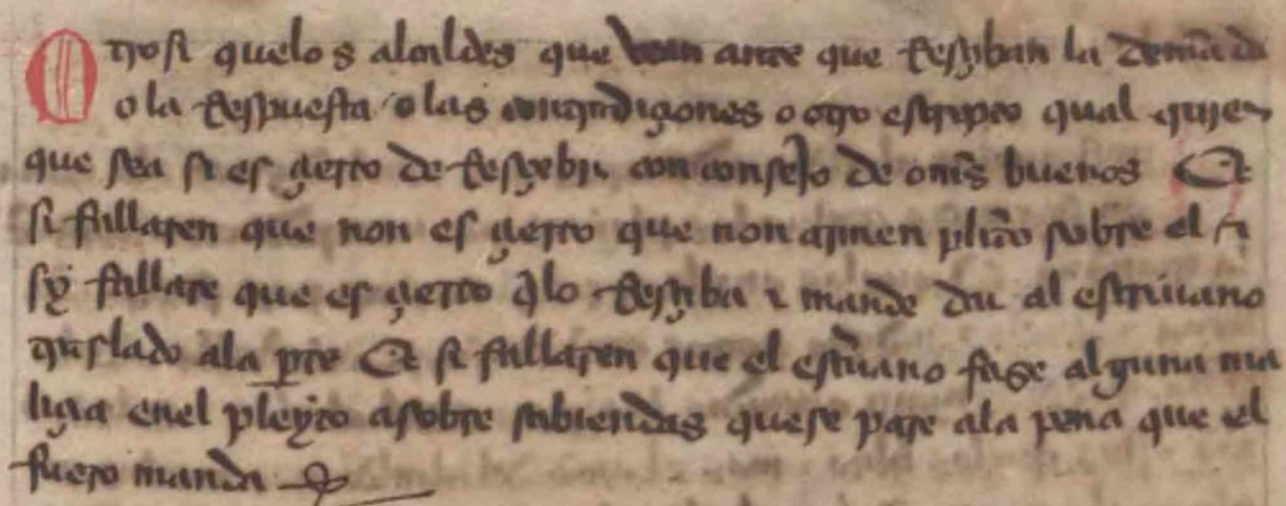 Otrosi quelos alcaldes que vean ante que Resçiban la demãda
o la Respuesta o las contradiçiones o otro escripto qual quier
que sea si es çierto de Resçebir con conseJo de om̃s buenos Et
si fallaren que non es çierto que non armen plito sobre el
sy fallare que es çierto q̃lo Resçiba ⁊ mande dar al escriuano
traslado ala ꝑte Et si fallaren que el esc̃uano fase alguna ma
liçia enel pleyto asobre sabiendas quese pare ala pena que el
fuero manda